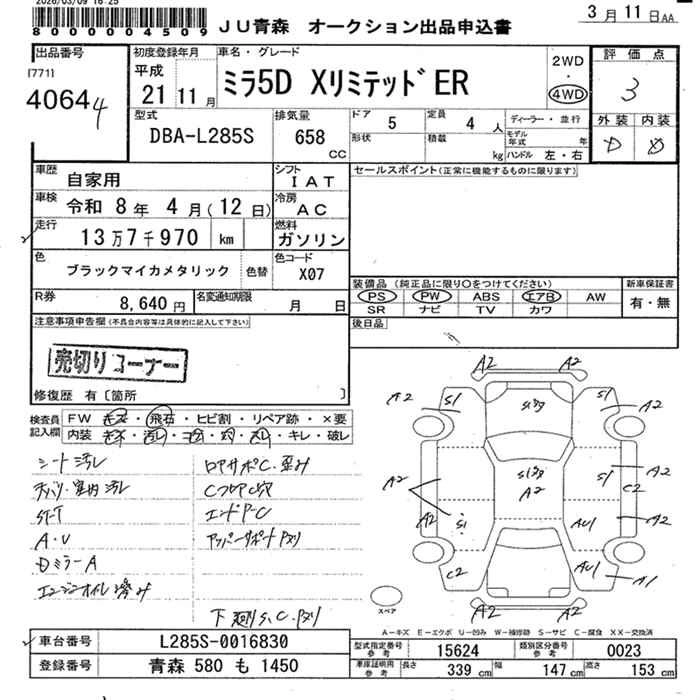 2026/03/09 16:25
800004509
JU青森 オークション出品申込書
3月11日AA
出品番号
[771]
40644
初度登録年月
平成
21 11月
車名・グレード
ミラ5D XリミテッドER
2WD
・
4WD
評価点
3
外装 内装
D D
型式
DBA-L285S
排気量
658
CC
ドア 5
形状
定員 4 人
積載 kg
ディーラー・並行
モデル年式 年
ハンドル 左・右
車歴
自家用
シフト
IAT
セールスポイント(正常に機能するものに限ります)
車検
令和 8年 4月(12日)
冷房
AC
走行
13万7千970 km
燃料
ガソリン
色
ブラックマイカメタリック
色替
色コード
X07
装備品 (純正品に限り〇をつけてください)
PS PW ABS エアB AW
SR ナビ TV カワ
新車保証書
有・無
R券
8,640円
名変通知期限
月 日
後日品
注意事項申告欄(不具合内容等は具体的に記入して下さい)
売切りコーナー
修復歴 有〔箇所 〕
検査員
記入欄
FW キズ・飛石・ヒビ割・リペア跡・×要
内装 キズ・汚レ・コゲ・穴・スレ・キレ・破レ
シート汚レ
チバリ・室内汚レ
ST-T
A・U
DミラーA
エンジンオイル滲み
ロアサポC・歪み
CつめC穴
エンドP-C
アッパーサポートPズリ
下廻りS.C.Pズリ
A2 A2
A2 S1 S1 A2
S1飛
S1飛
A2
A2
A2
S1
A2
C2
A2
AU1
C2
AU1
A1
A2 A2
スペア
A−キズ E−エクボ U−凹み W−補修跡 S−サビ C−腐食 XX−交換済
車台番号
L285S-0016830
登録番号
青森 580 も 1450
型式指定番号
参考
15624
類別区分番号
参考
0023
車庫証明用
参考
長さ 339 cm
幅 147 cm
高さ 153 cm